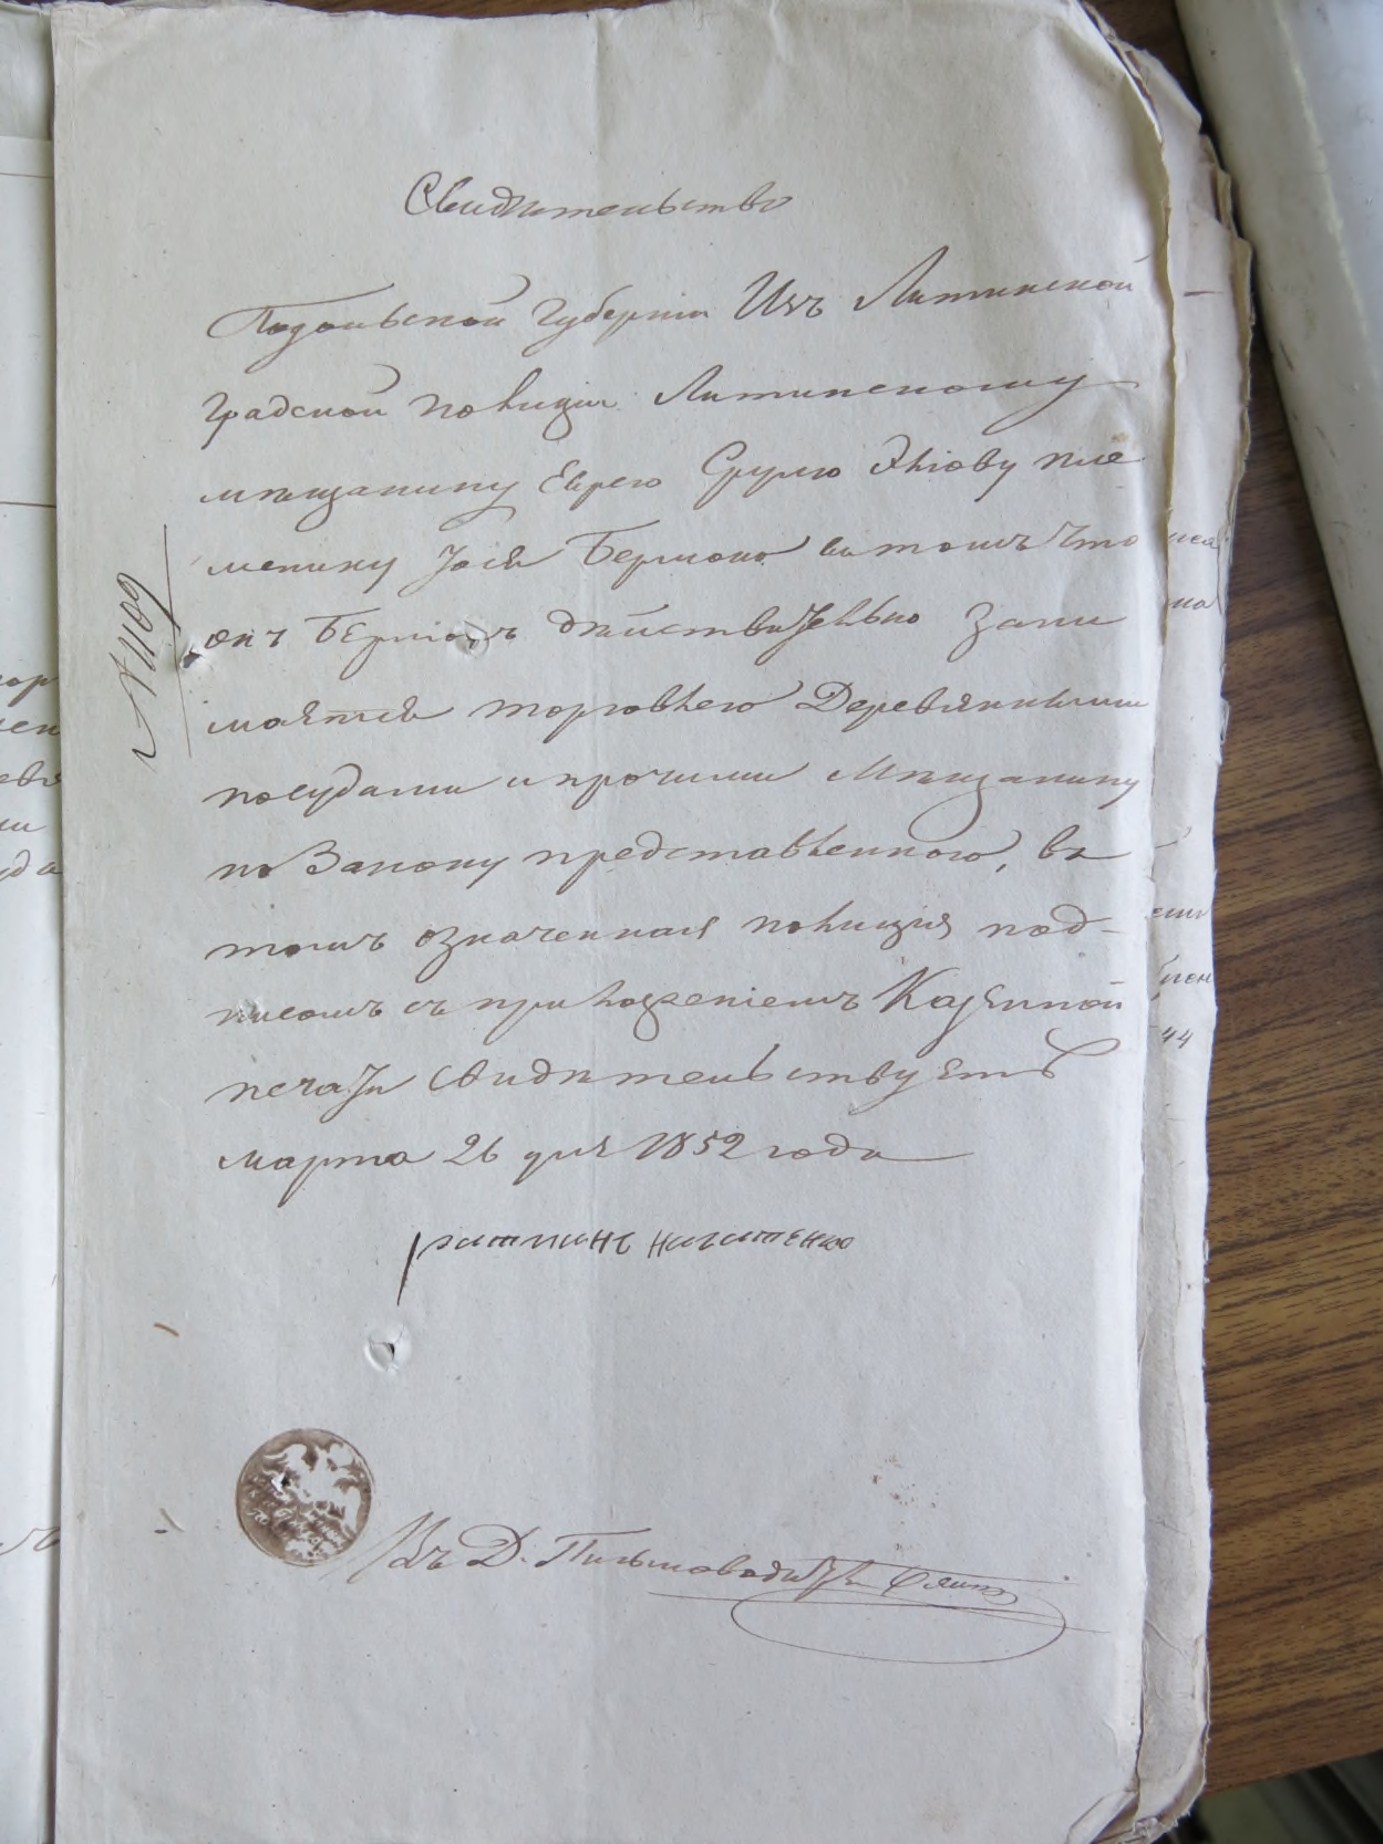 Свидѣтельство
Подольской Губерніи Изъ Литинской
Градской полиціи Литинскому
мѣщанину Еврею Срулю Эліову пле
менику Іося Берман въ томъ что
онъ Берман дѣйствительно зани
маятся торговлею Деревянными
посудами и прочими Мѣщанину
по Закону представленною, въ
томъ означенная полиція под-
писомъ съ приложеніемъ Казенной
печати свидѣтельствуетъ
марта 26 дня 1852 года
№ 1109
Въ Д. Письмоводителя